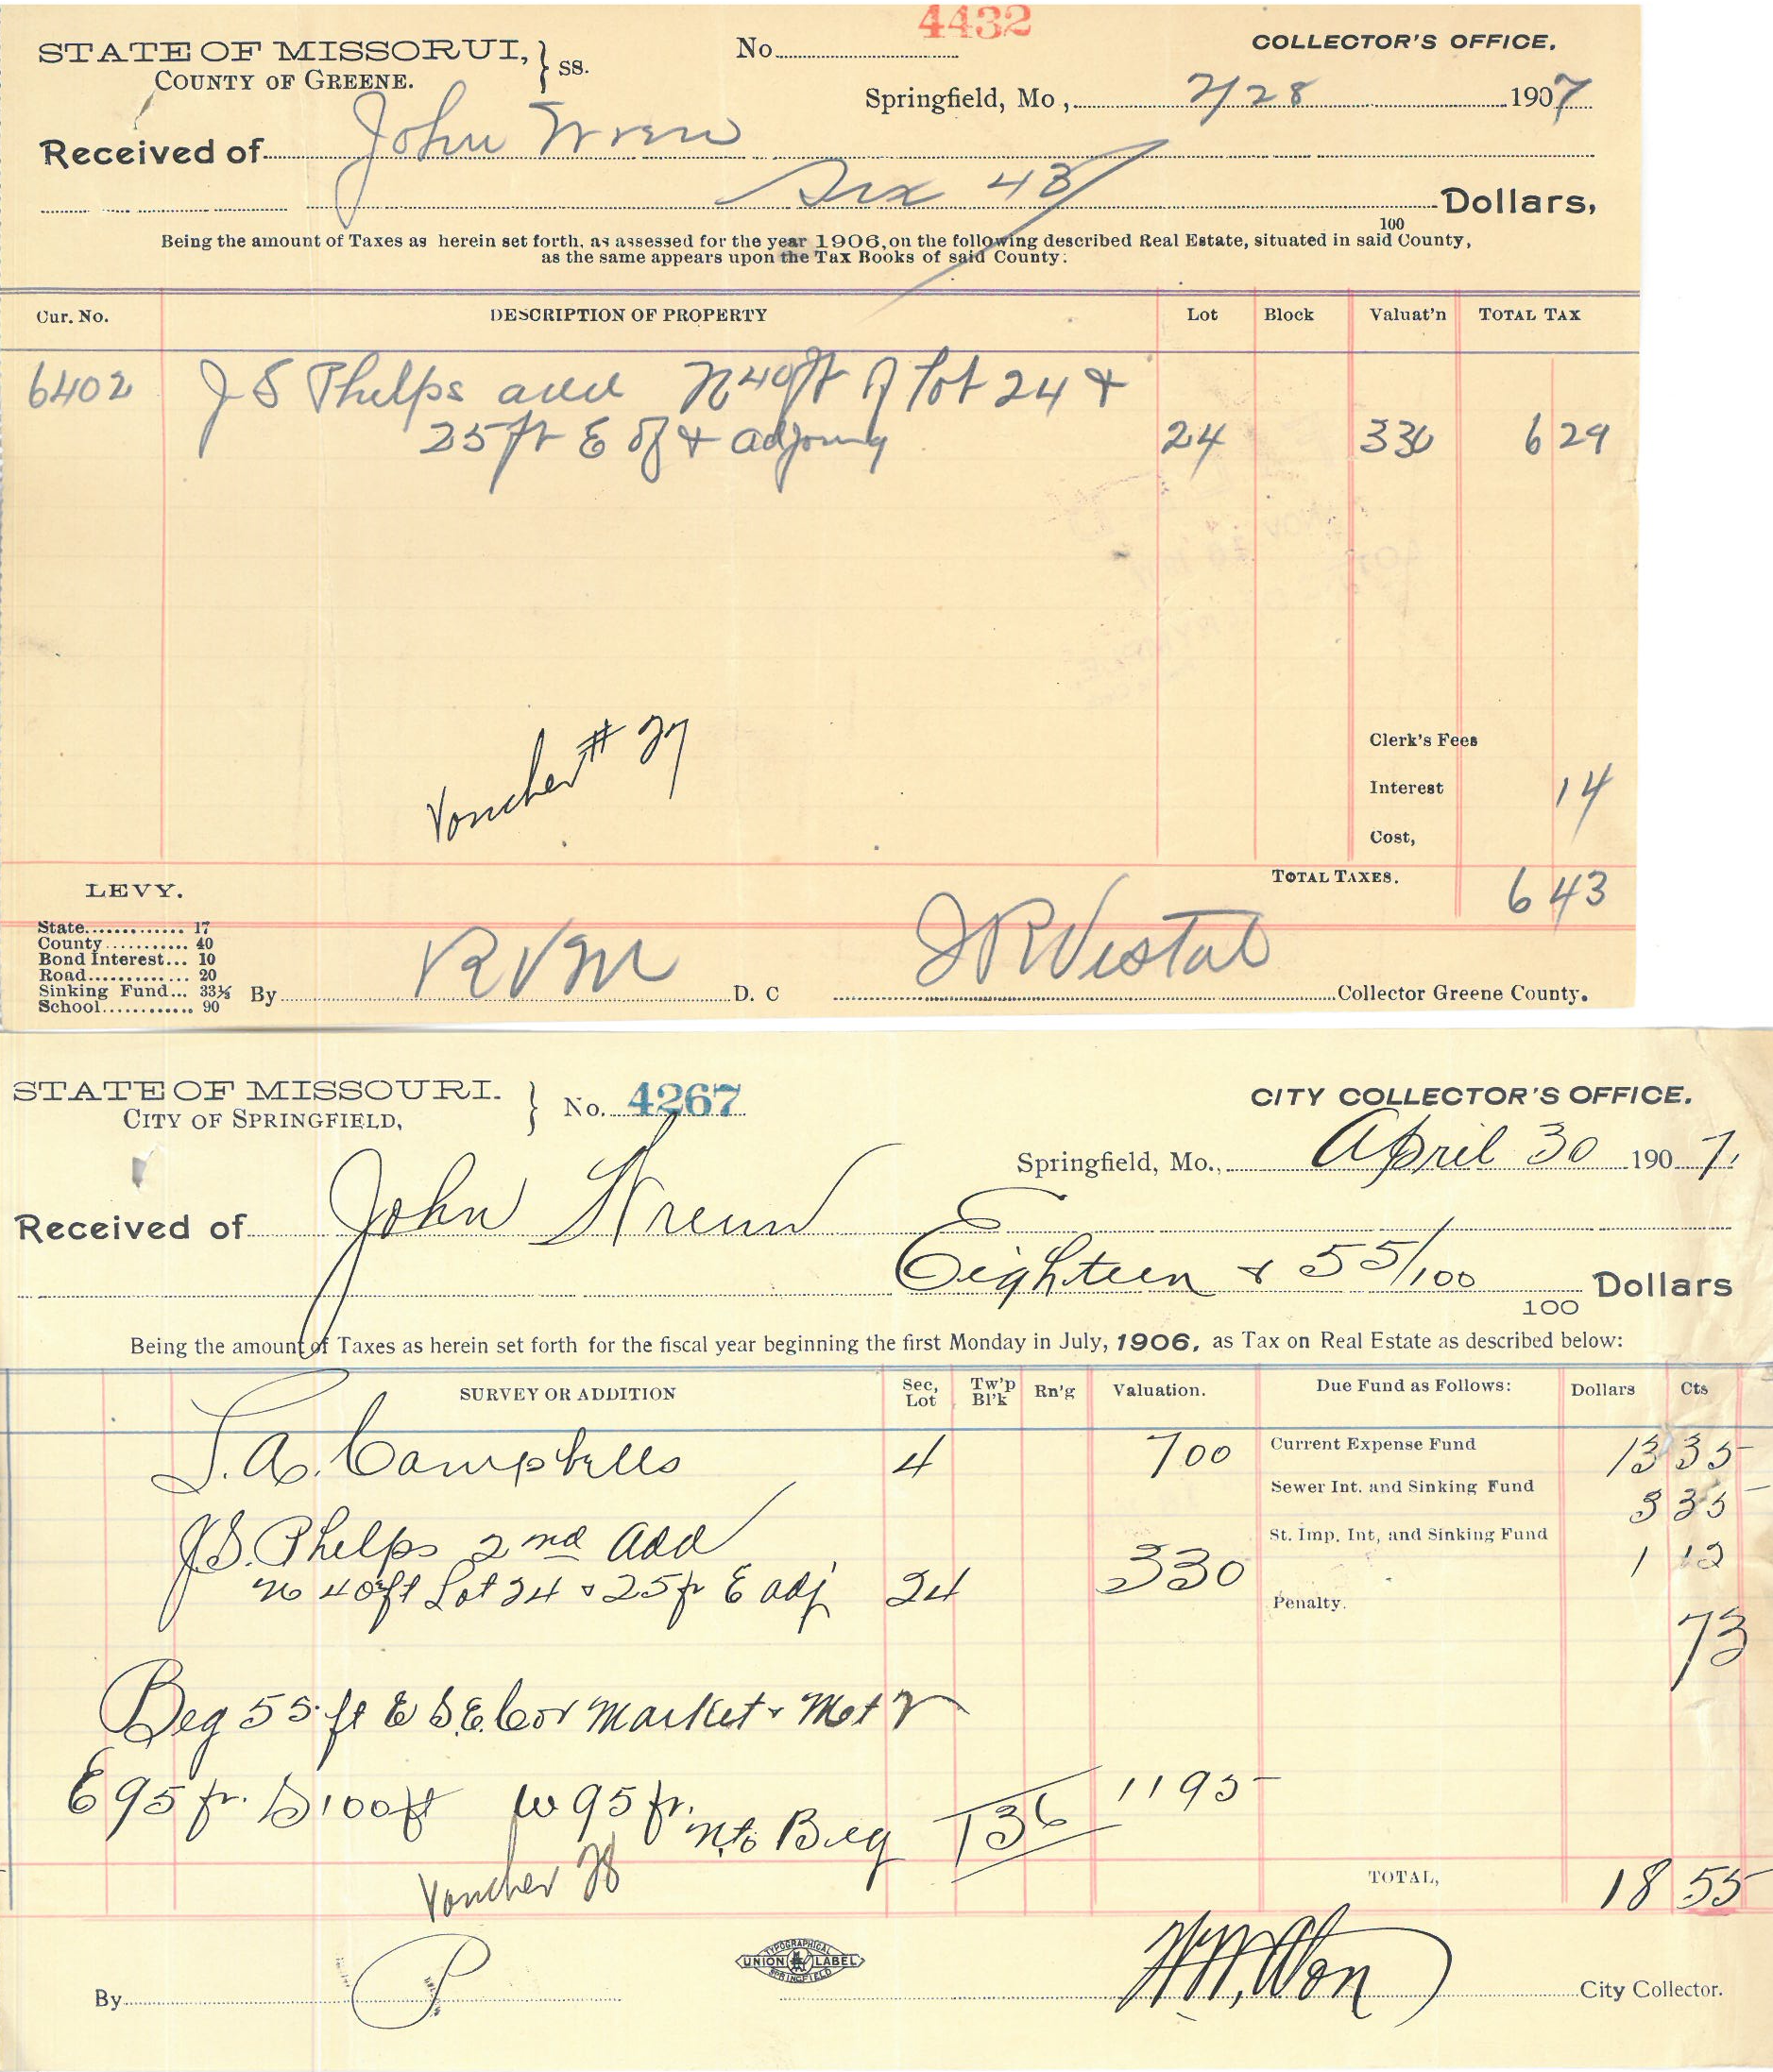 4432
STATE OF MISSORUI, } SS.
No.
COLLECTOR'S OFFICE.
COUNTY OF GREENE.
Springfield, Mo., 2/28 1907
Received of John Wrenn
Six 43/ Dollars,
100
Being the amount of Taxes as herein set forth, as assessed for the year 1906, on the following described Real Estate, situated in said County,
as the same appears upon the Tax Books of said County:
Cur. No. DESCRIPTION OF PROPERTY Lot Block Valuat'n TOTAL TAX
6402 J S Phelps add N 40 ft of lot 24 &
25 ft E of & adjoing 24 330 6 29
Voucher # 27
Clerk's Fees
Interest 14
Cost,
TOTAL TAXES. 6 43
LEVY.
State............. 17
County........... 40
Bond Interest... 10
Road............. 20
Sinking Fund... 33⅓
School............ 90
By RVM D. C
J R Vestal Collector Greene County.
STATE OF MISSOURI. } No. 4267
CITY COLLECTOR'S OFFICE.
CITY OF SPRINGFIELD,
Springfield, Mo., April 30 1907.
Received of John Wrenn
Eighteen & 55/100 Dollars
100
Being the amount of Taxes as herein set forth for the fiscal year beginning the first Monday in July, 1906, as Tax on Real Estate as described below:
SURVEY OR ADDITION Sec, Lot Tw'p Bl'k Rn'g Valuation. Due Fund as Follows: Dollars Cts
L. A. Campbells 4 700 Current Expense Fund 13 35
Sewer Int. and Sinking Fund 3 35
J.S. Phelps 2nd Add St. Imp. Int, and Sinking Fund 1 12
N 40 ft Lot 24 & 25 ft E adj 24 330 Penalty. 73
Beg 55 ft E S.E. Cor Market & Mt V
E 95 ft. S 100 ft W 95 ft. N to Beg 136 1195
Voucher 28
TOTAL, 18 55
By P
TYPOGRAPHICAL
UNION LABEL
SPRINGFIELD
City Collector.